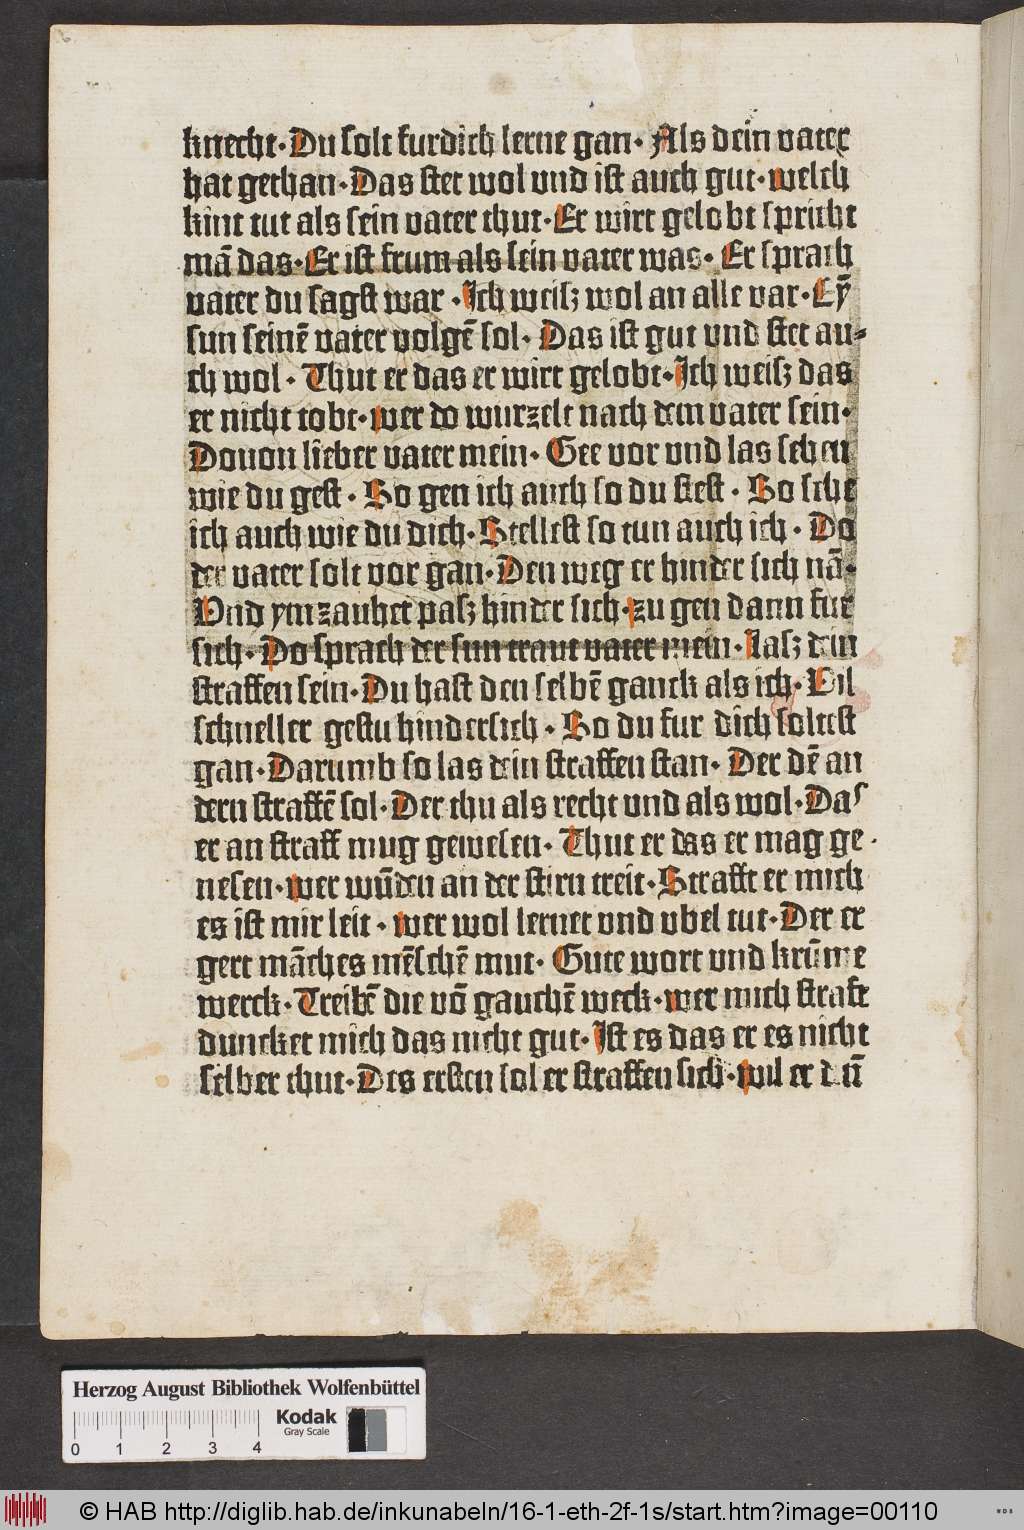 knecht·Du solt furdich lerne gan·Als dein vater
hat gethan·Das stet wol vnd ist auch gut·welch
kint tut als sein vater thut·Er wirt gelobt spricht
mā das·Er ist frum als sein vater was·Er sprach
vater du sagst war·Ich weisz wol an alle var·Eӯ
sun seinē vater volgē sol·Das ist gut vnd stet au⸗
ch wol·Thut er das er wirt gelobt·Ich weisz das
er nicht tobt·wer do wurzelt nach dem vater sein·
Douon lieber vater mein·Gee vor vnd las sehen
wie du gest·So gen ich auch so du stest·So sehe
ich auch wie du dich·Stellest so tun auch ich·Do
der vater solt vor gan·Den weg er hinder sich nā·
Vnd ym zauhet pasz hinder sich·zu gen dann fur
sich·Do sprach der sun traut vater mein·lasz dein
straffen sein·Du hast den selbē ganck als ich·Vil
schneller gestu hindersich·So du fur dich soltest
gan·Darumb so las dein straffen stan·Der dē an
dern straffē sol·Der thu als recht vnd als wol·Das
er an straff mug gewesen·Thut er das er mag ge·
nesen·wer wūden an der stirn treit·Strafft er mich
es ist mir leit·wer wol lernet vnd vbel tut·Der er
gert māches mēschē mut·Gute wort vnd krūme
werck·Treibē die vō gauchē weck·wer mich straft
duncket mich das nicht gut·Ist es das er es nicht
selber thut·Des ersten sol er straffen sich·wil er dū
Herzog August Bibliothek Wolfenbüttel
Kodak
Gray Scale
0 1 2 3 4
© HAB http://diglib.hab.de/inkunabeln/16-1-eth-2f-1s/start.htm?image=00110